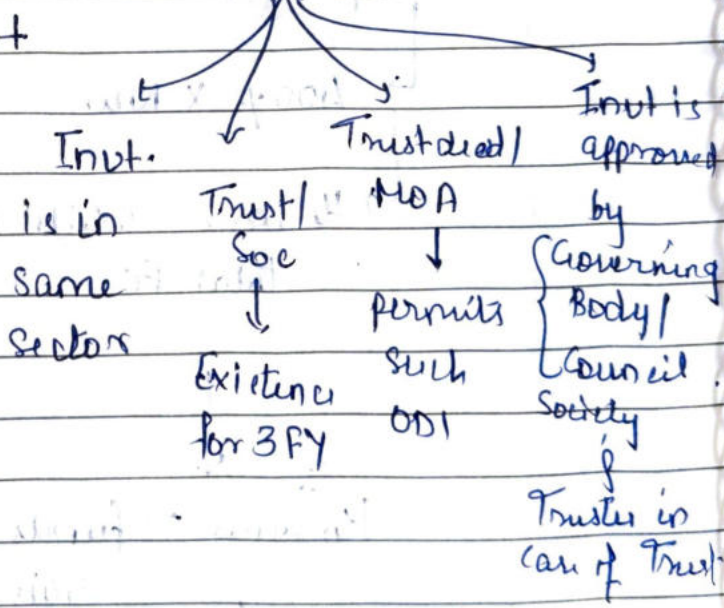 +
Invt.
is in
same
sector
Trust/
Soc
↓
Existence
for 3 FY
Trust deed/
MOA
↓
permits
such
ODI
Invt is
approved
by
Governing
Body/
Council
Society
&
Trustee in
case of Trust